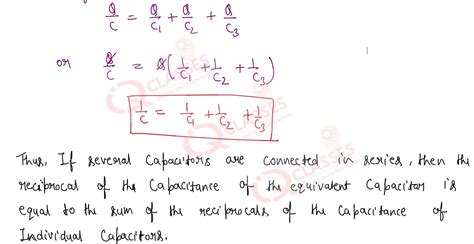 Q/C = Q/C₁ + Q/C₂ + Q/C₃
or Q/C = Q(1/C₁ + 1/C₂ + 1/C₃)
1/C = 1/C₁ + 1/C₂ + 1/C₃
Thus, If several Capacitors are connected in series, then the
reciprocal of the Capacitance of the equivalent Capacitor is
equal to the sum of the reciprocals of the Capacitance of
Individual Capacitors.
CLASSES
CLASSES
CLASSES